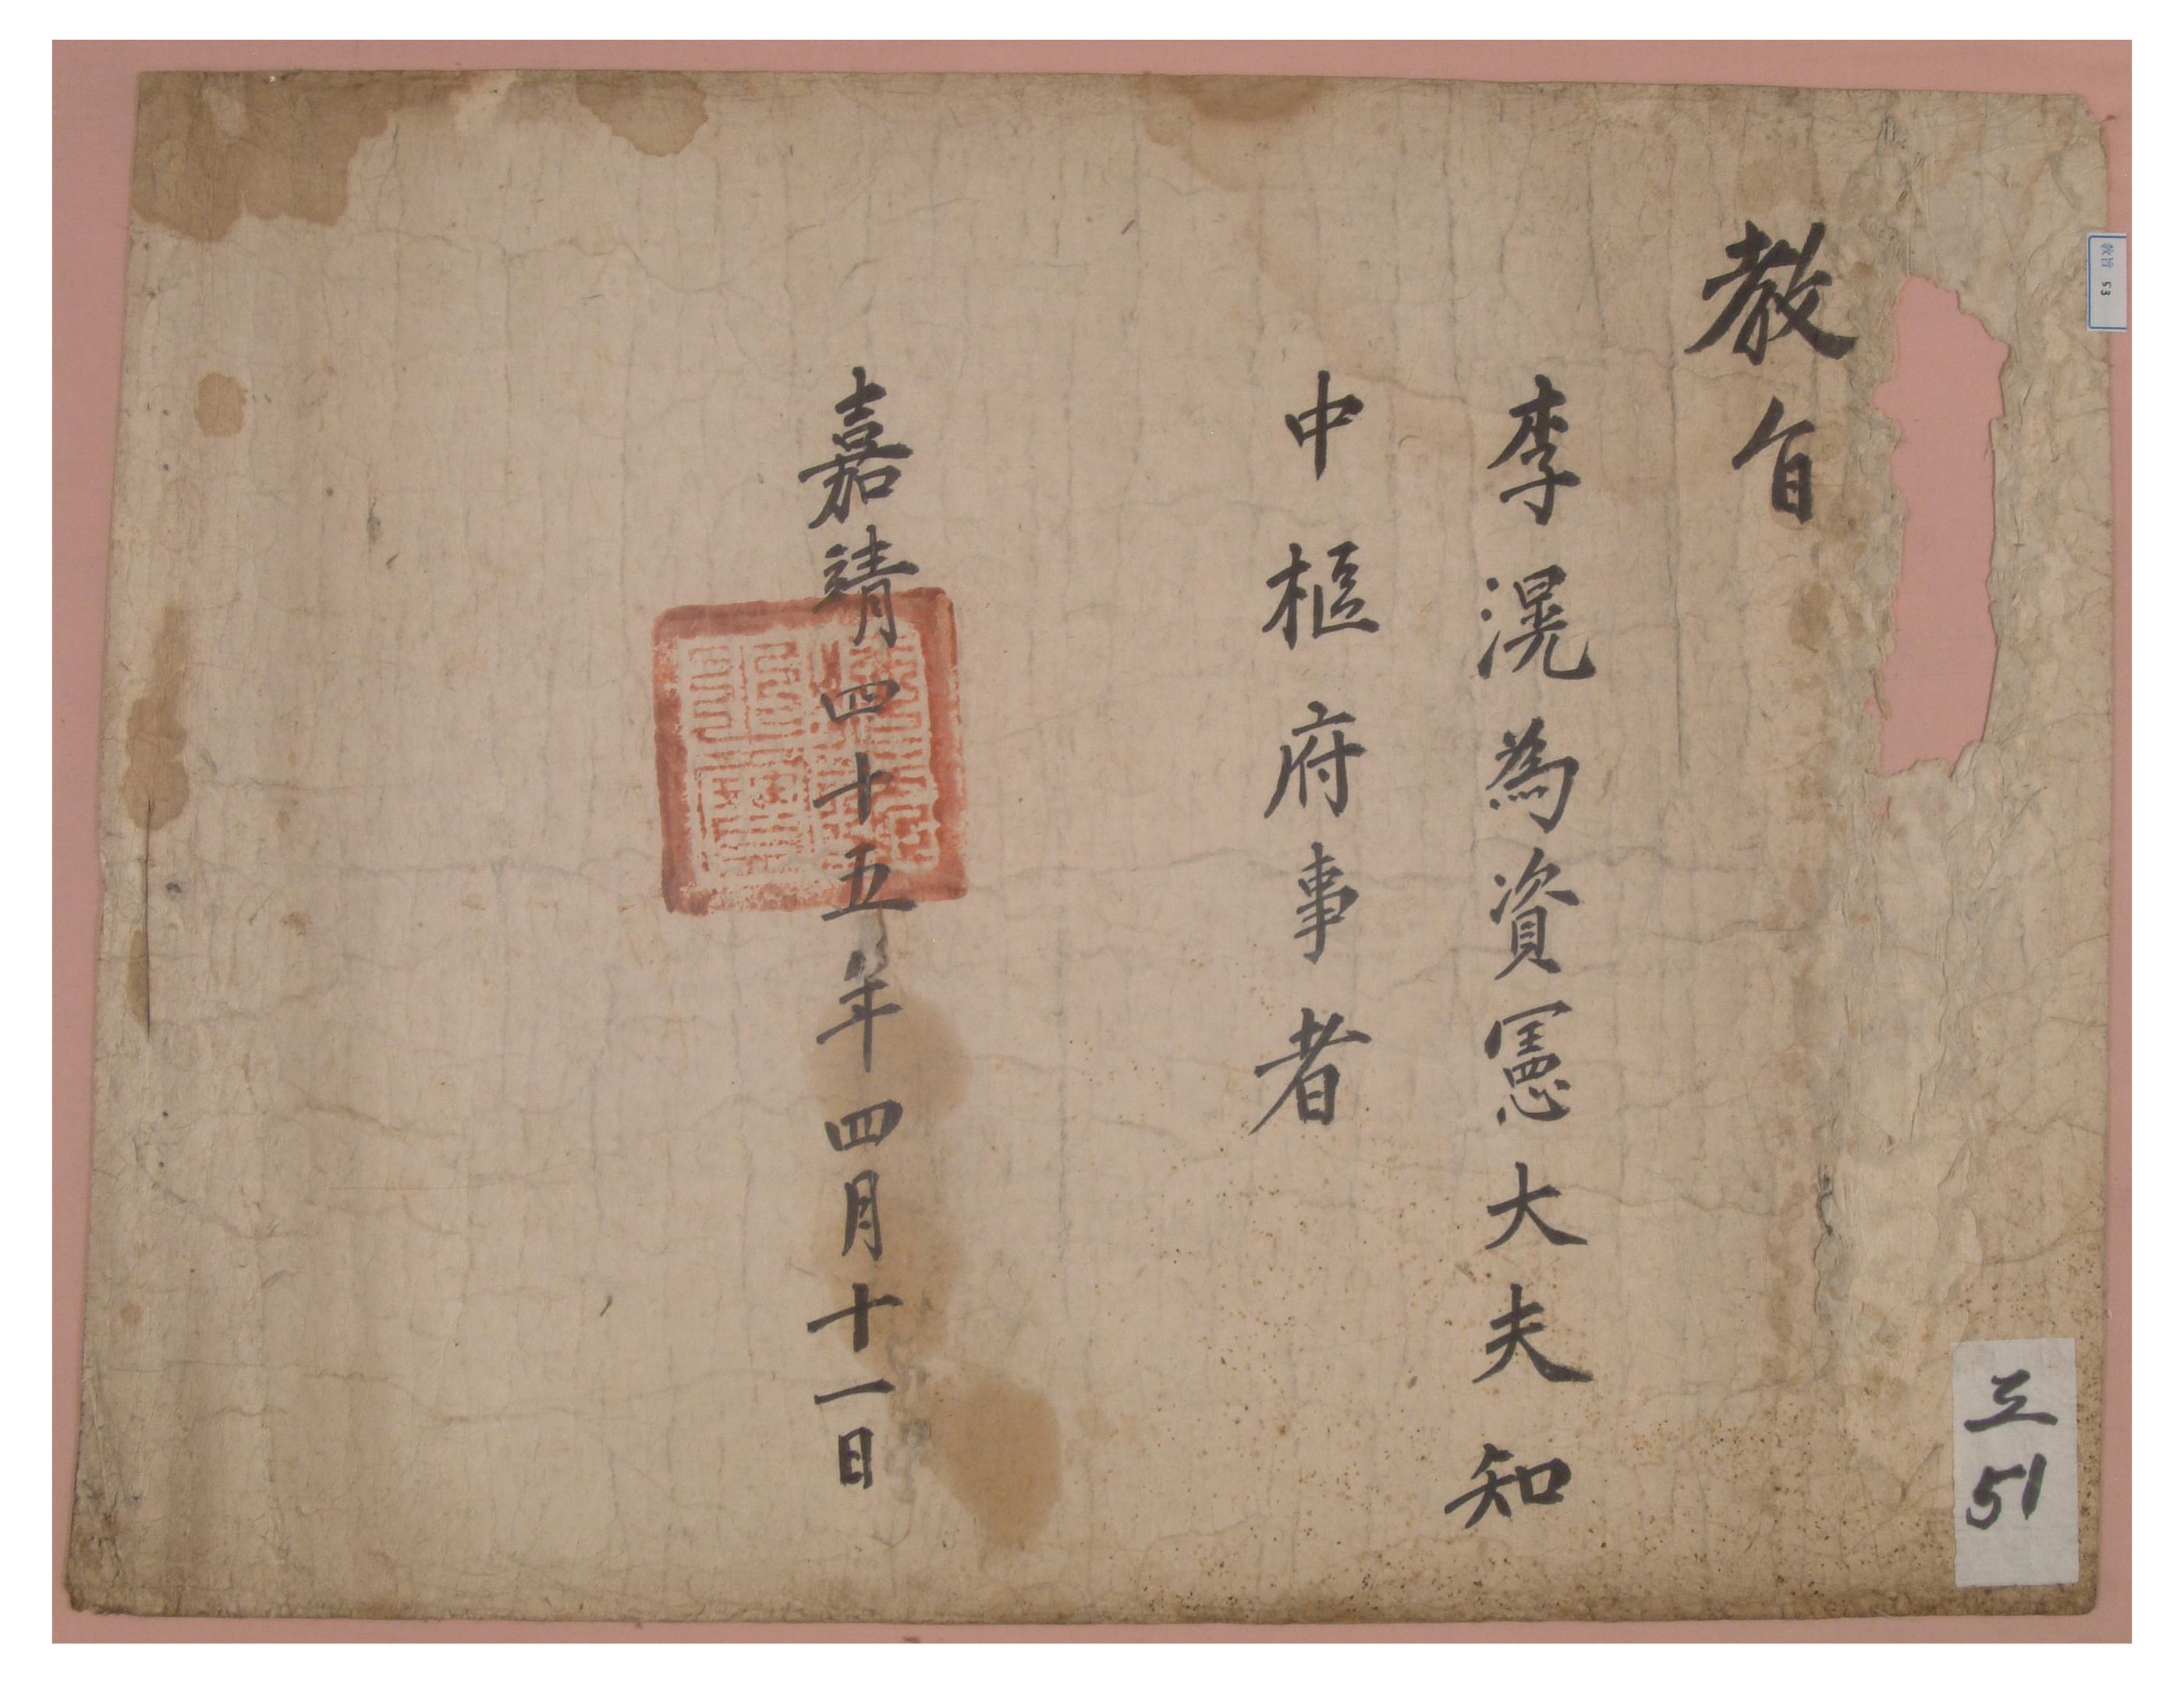 教旨
李滉為資憲大夫知
中樞府事者
嘉靖四十五年四月十一日
教旨 53
三
51